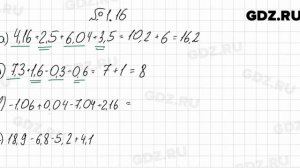 GDZ.RU
№1.16
) 4,16+2,5+6,04+3,5 = 10,2+6 = 16,2
) 7,3+1,6-0,3-0,6 = 7+1 = 8
) -1,06+0,04-7,04+2,16 =
) 18,9-6,8-5,2+4,1
GDZ.RU